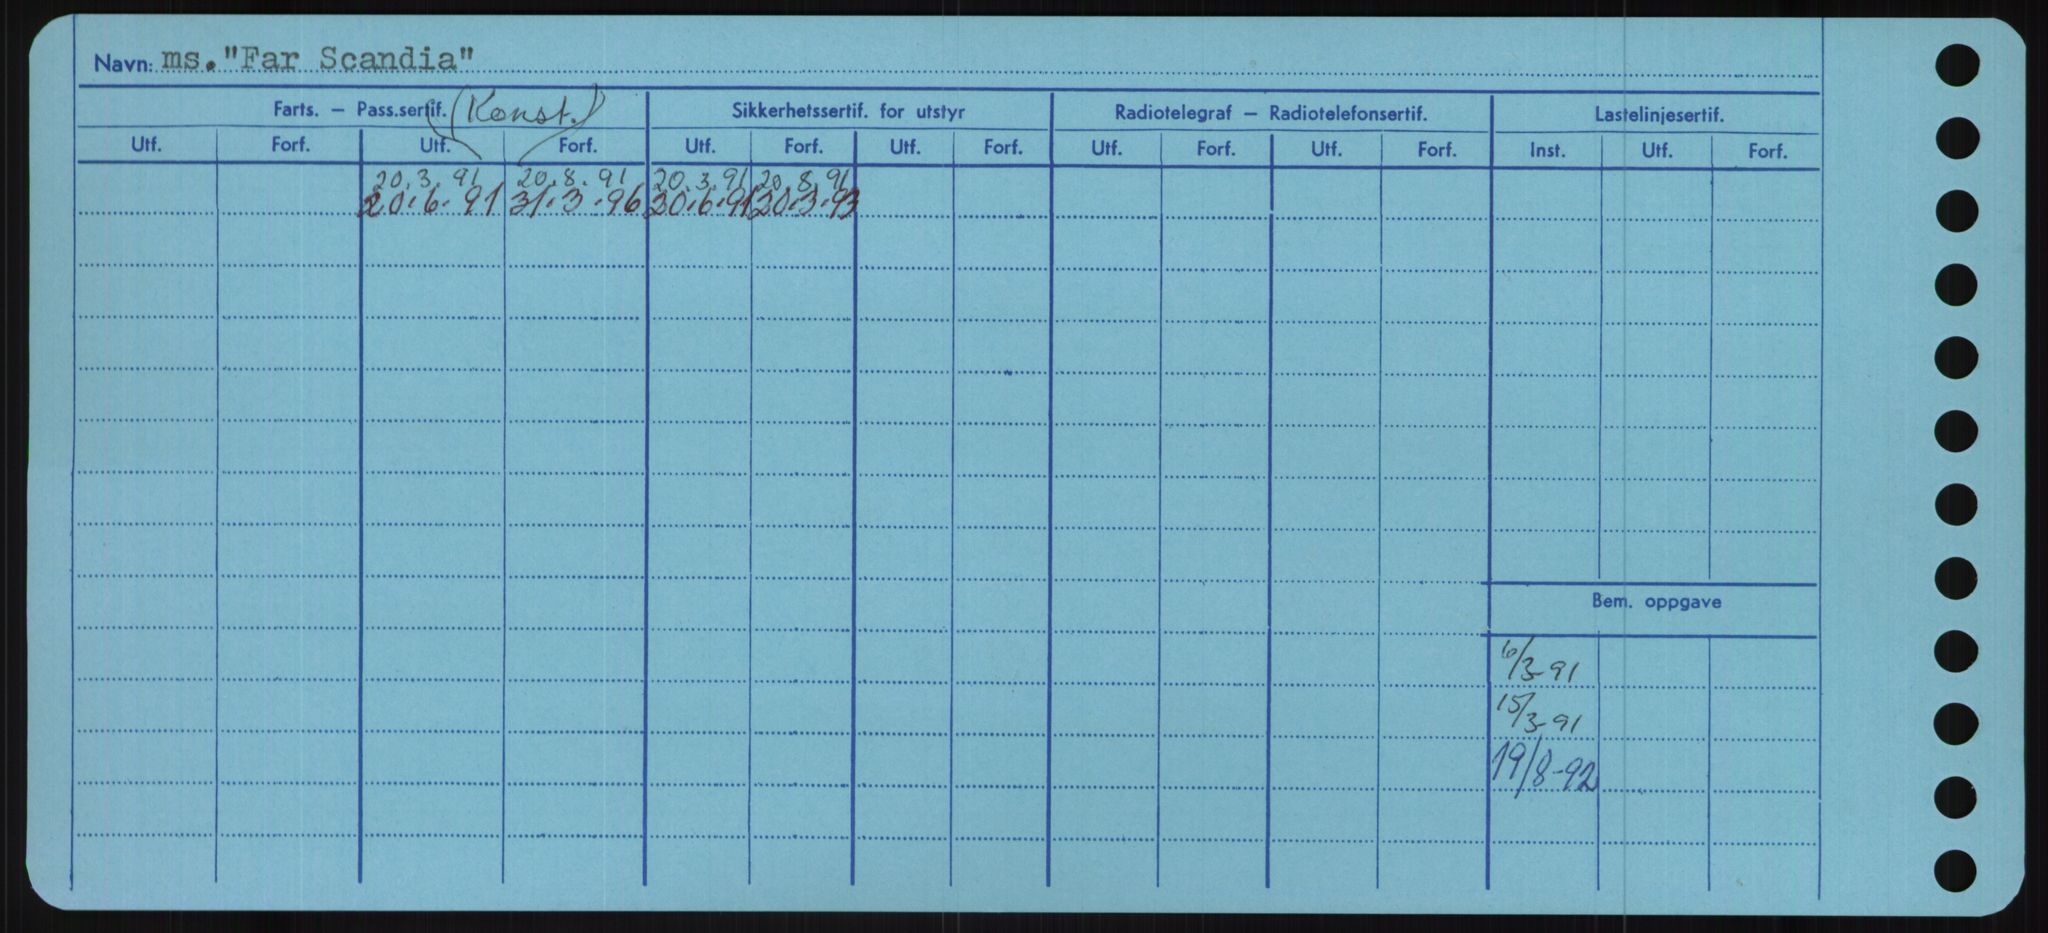 Navn: ms."Far Scandia"
Farts. – Pass.sertif. (Konst.) Sikkerhetssertif. for utstyr Radiotelegraf – Radiotelefonsertif. Lastelinjesertif.
Utf. Forf. Utf. Forf. Utf. Forf. Utf. Forf. Utf. Forf. Utf. Forf. Inst. Utf. Forf.
20.3.91 20.8.91 20.3.91 20.8.91
20.6.91 31.3.96 20.6.91 20.3.93
Bem. oppgave
6/3-91
15/3-91
19/8-92